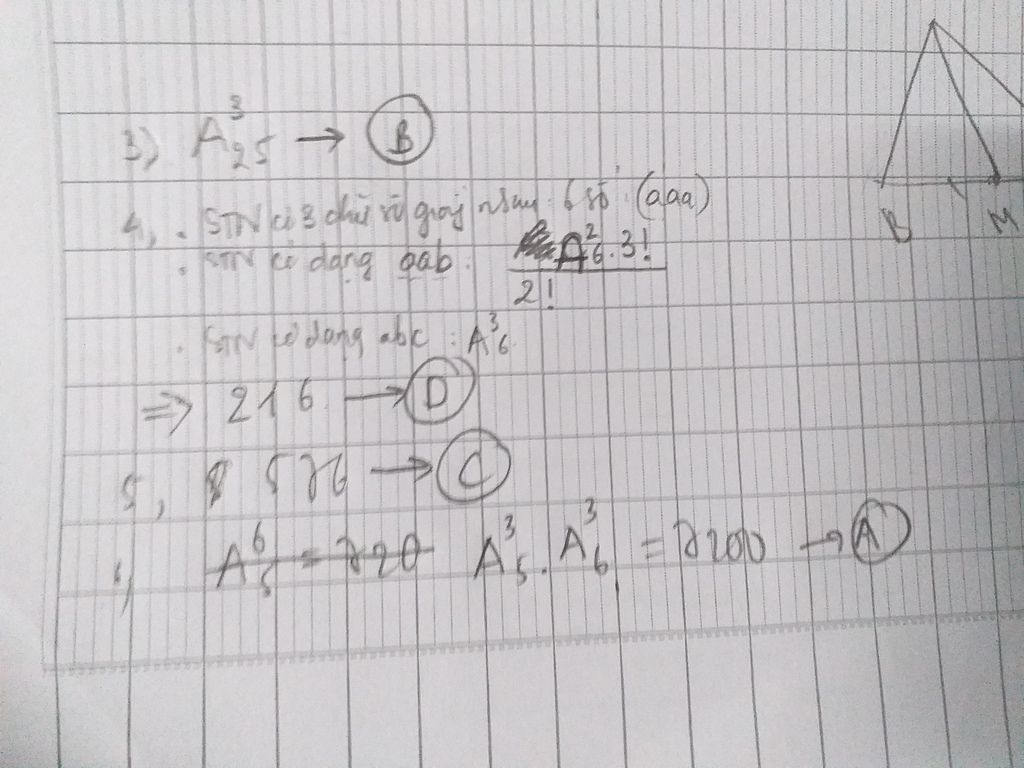 3) A³₂₅ → B
4, . STN có 3 chữ số giống nhau : 6 số : (aaa)
. STN có dạng aab : A²₆ . 3!
2!
. STN có dạng abc : A³₆
=> 216 → D
5, 576 → C
A⁶₅ = 720 A³₅ . A³₆ = 7200 → A
B M